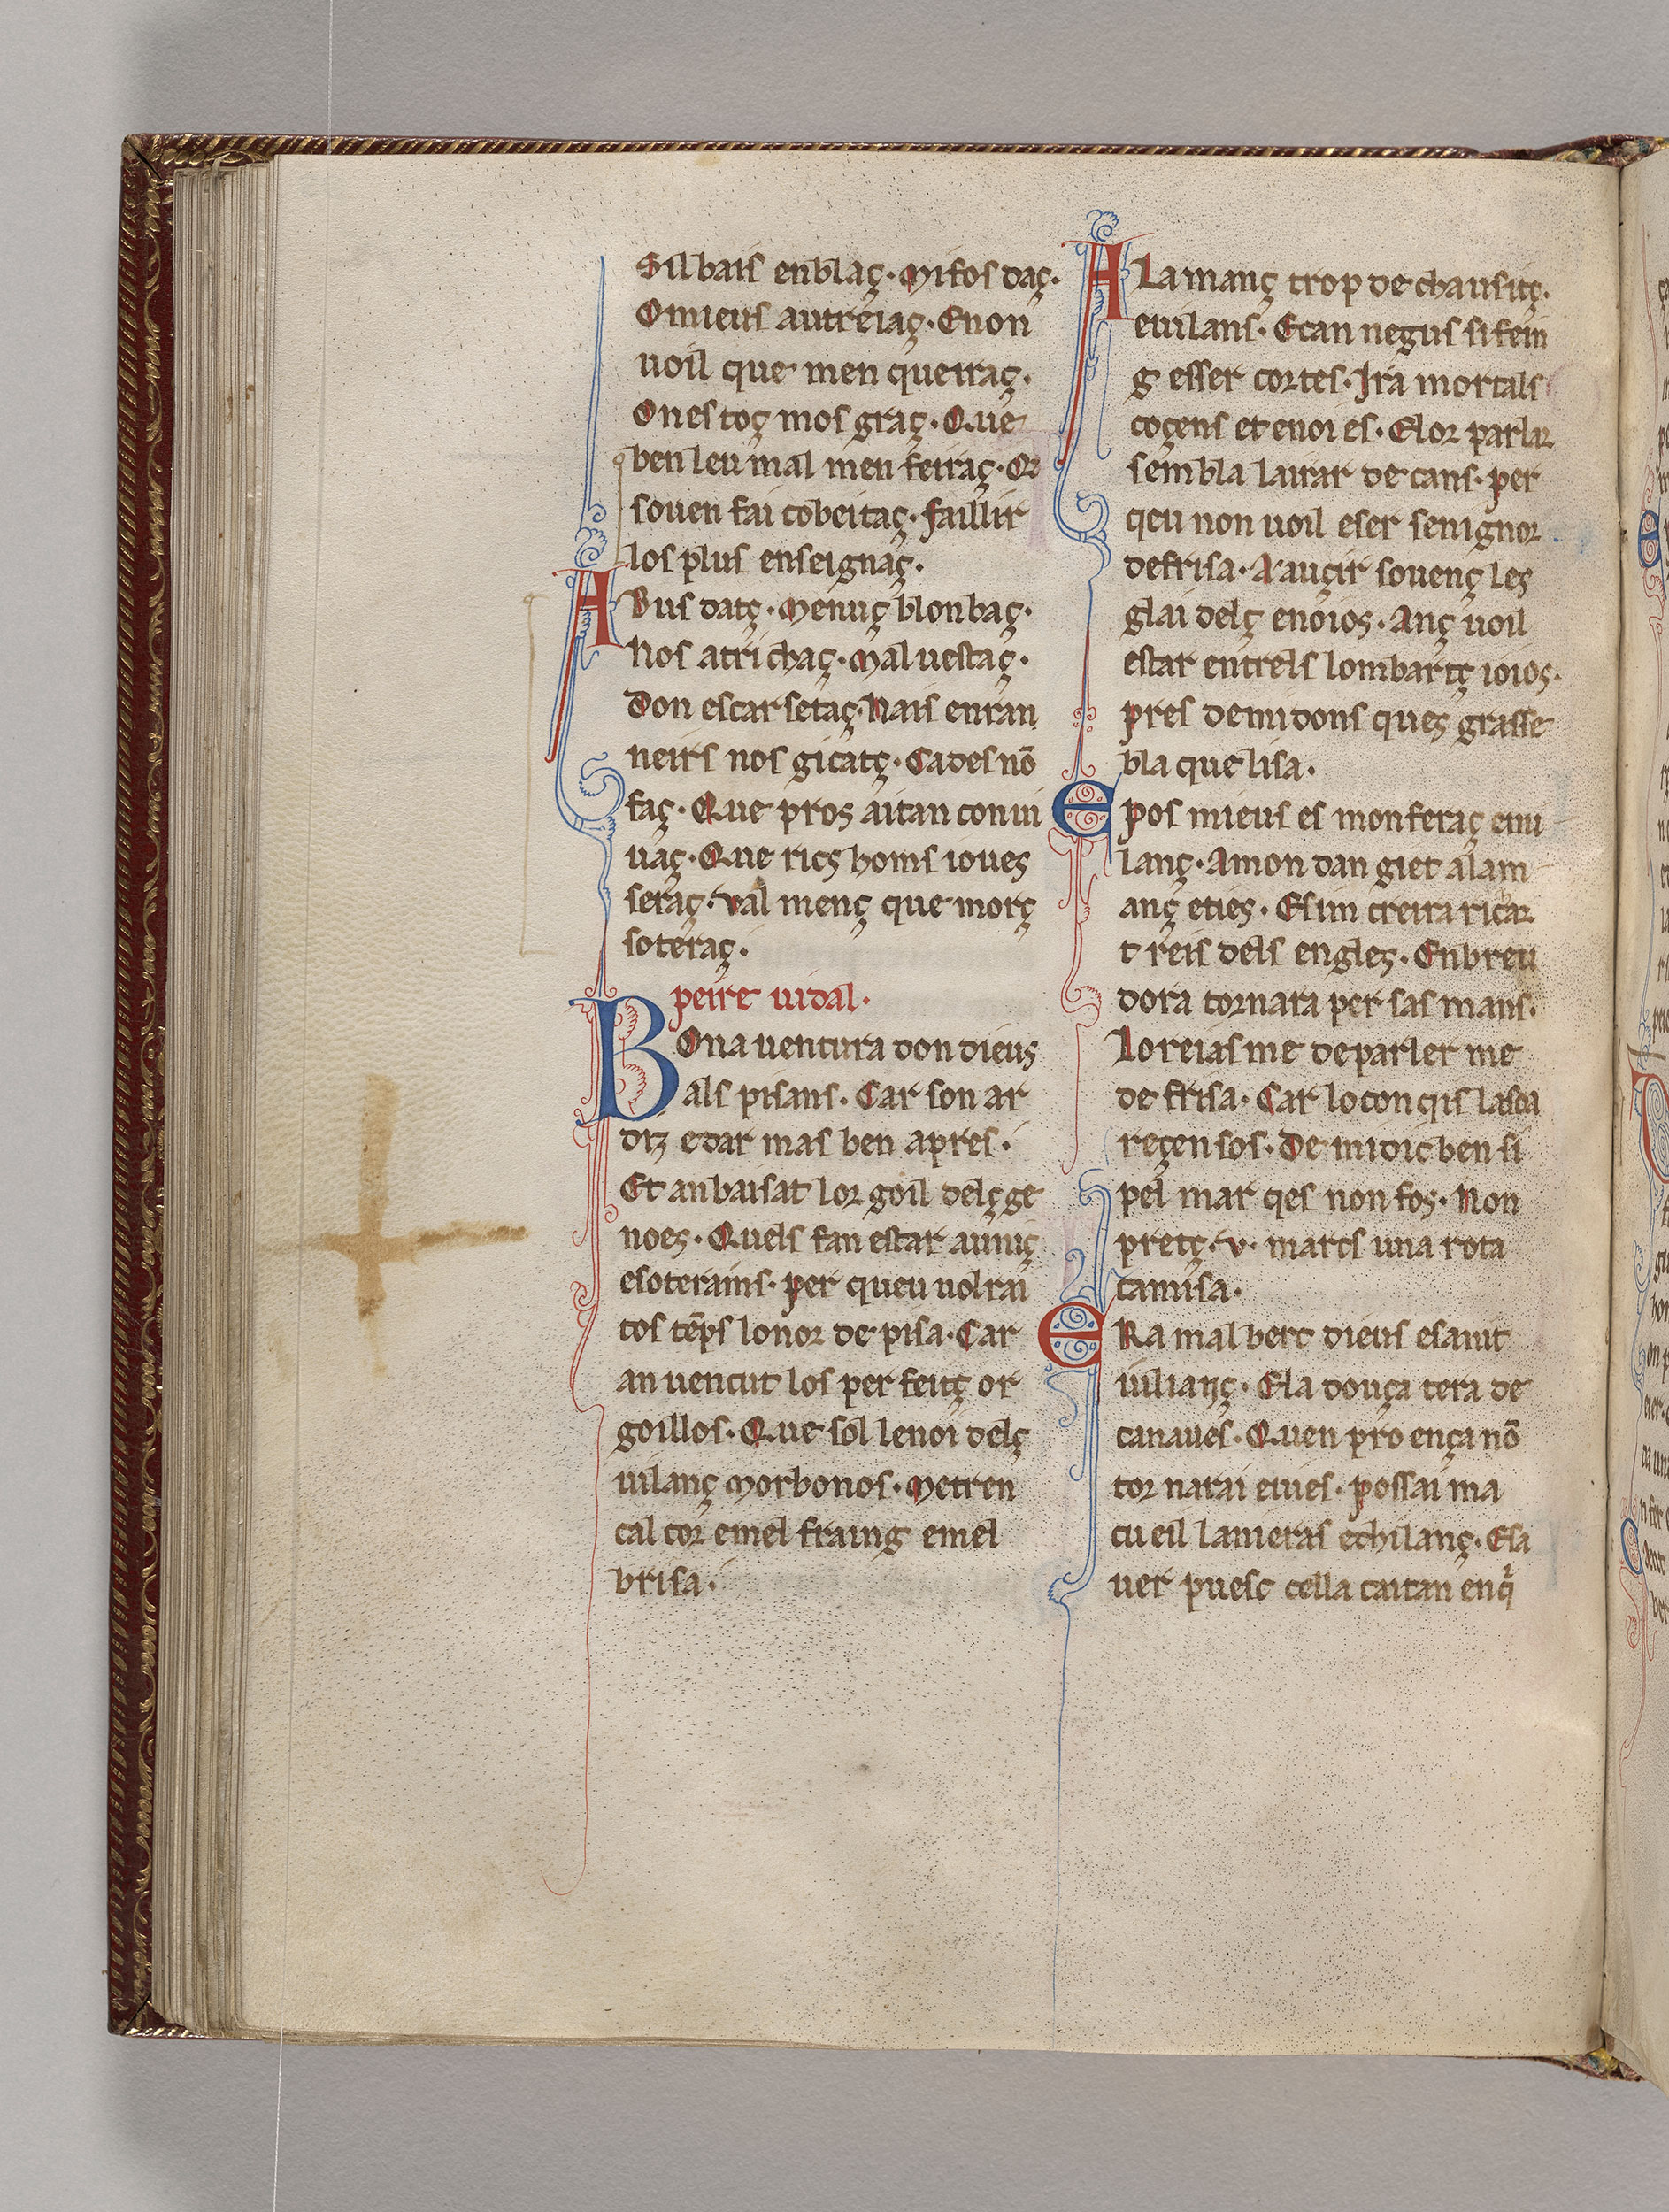 Sil bais enblaç· Mi fos daç·
O mieus autreiaç· E non
uoil que men queiraç·
O nes toç mos graç· Que
ben leu mal men feiraç· Or
souen fai cobeitaç· faillir
los plus enseignaç·
ABus datç· Menuç blon baç·
Nos atrichaç· Mal uestaç·
Don escarsetaç· Nais enran
neirs nos gicatç· Cades nō
faç· Que pros aitan conui
uaç· Que rics homs ioues
seraç· val menç que morç
soteraç·
peire uidal·
BOna uentura don dieus
als pisans· Car son ar
diz edar mas ben apres·
Et an baisat lor goil delç ge
noes· Quels fan estar auniç
e soterains· per queu uolrai
tos tēps lonor de pisa· Car
an uencut los per feitç or
goillos· Que sol lenoi delç
uilanç Morbonos· Me tren
cal cor emel fraing emel
brisa·
ALamanç trop de chausitç·
euilans· E can negus si fein
g esser cortes· Ira mortals
coçens et enoi es· E lor parlar
sembla lairar de cans· per
qeu non uoil eser senignor
de frisa· Aauçir souenç les
glai delç enoios· Anç uoil
estar entrels lombartç ioios·
pres demidons ques grasse
bla que lisa·
E pos mieus es monferaç emi
lanç· Amon dan giet alam
anç eties· E sim creira ricar
t reis dels engles· En breu
dora tornara per sas mans·
Lo reiasme de parler me
de frisa· Car lo conqis lasoa
reçen sos· De mi dic ben si
pel mar qes non fos· Non
pretç· v· marcs una rota
camisa·
ERa mal berc dieus esauit
iulianç· E la douça tera de
canaues· Quen pro ença nō
tor narai eiues· possai ma
cu eil lanieras echilanç· E sa
uer puesc cella caitan enq̓